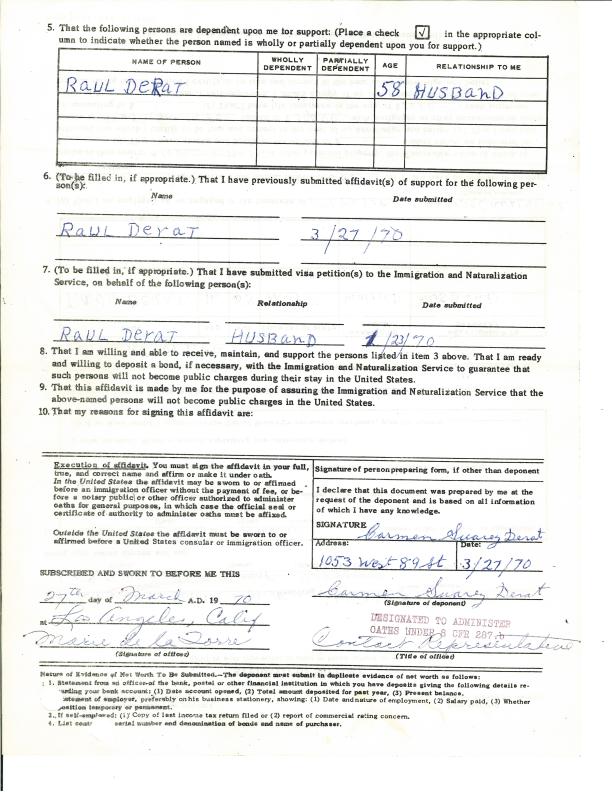 5. That the following persons are dependent upon me for support: (Place a check √ in the appropriate col-
umn to indicate whether the person named is wholly or partially dependent upon you for support.)
NAME OF PERSON WHOLLY DEPENDENT PARTIALLY DEPENDENT AGE RELATIONSHIP TO ME
RAUL DERAT 58 HUSBAND
6. (To be filled in, if appropriate.) That I have previously submitted affidavit(s) of support for the following per-
son(s):
Name Date submitted
RAUL Derat 3/27/70
7. (To be filled in, if appropriate.) That I have submitted visa petition(s) to the Immigration and Naturalization
Service, on behalf of the following person(s):
Name Relationship Date submitted
RAUL DERAT HUSBAND 1/23/70
8. That I am willing and able to receive, maintain, and support the persons listed in item 3 above. That I am ready
and willing to deposit a bond, if necessary, with the Immigration and Naturalization Service to guarantee that
such persons will not become public charges during their stay in the United States.
9. That this affidavit is made by me for the purpose of assuring the Immigration and Neturalization Service that the
above-named persons will not become public charges in the United States.
10. That my reasons for signing this affidavit are:
Execution of affidavit. You must sign the affidavit in your full,
true, and correct name and affirm or make it under oath.
In the United States the affidavit may be sworn to or affirmed
before an immigration officer without the payment of fee, or be-
fore a notary public or other officer authorized to administer
oaths for general purposes, in which case the official seal or
certificate of authority to administer oaths must be affixed.
Outside the United States the affidavit must be sworn to or
affirmed before a United States consular or immigration officer.
Signature of person preparing form, if other than deponent
I declare that this document was prepared by me at the
request of the deponent and is based on all information
of which I have any knowledge.
SIGNATURE
Carmen Suarez Derat
Address: Date:
1053 West 89 St 3/27/70
SUBSCRIBED AND SWORN TO BEFORE ME THIS
27th day of March A.D. 19 70
Carmen Suarez Derat
(Signature of deponent)
at Los Angeles, Calif
DESIGNATED TO ADMINISTER
OATHS UNDER 8 CFR 287.
Marie De la Torre
Contact Representative
(Signature of officer) (Title of officer)
Nature of Evidence of Net Worth To Be Submitted.—The deponent must submit in duplicate evidence of net worth as follows:
1. Statement from an officer of the bank, postal or other financial institution in which you have deposits giving the following details re-
garding your bank account: (1) Date account opened, (2) Total amount deposited for past year, (3) Present balance.
tatement of employer, preferably on his business stationery, showing: (1) Date and nature of employment, (2) Salary paid, (3) Whether
position temporary or permanent.
3. If self-employed: (1) Copy of last income tax return filed or (2) report of commercial rating concern.
4. List cont serial number and denomination of bonds and name of purchaser.